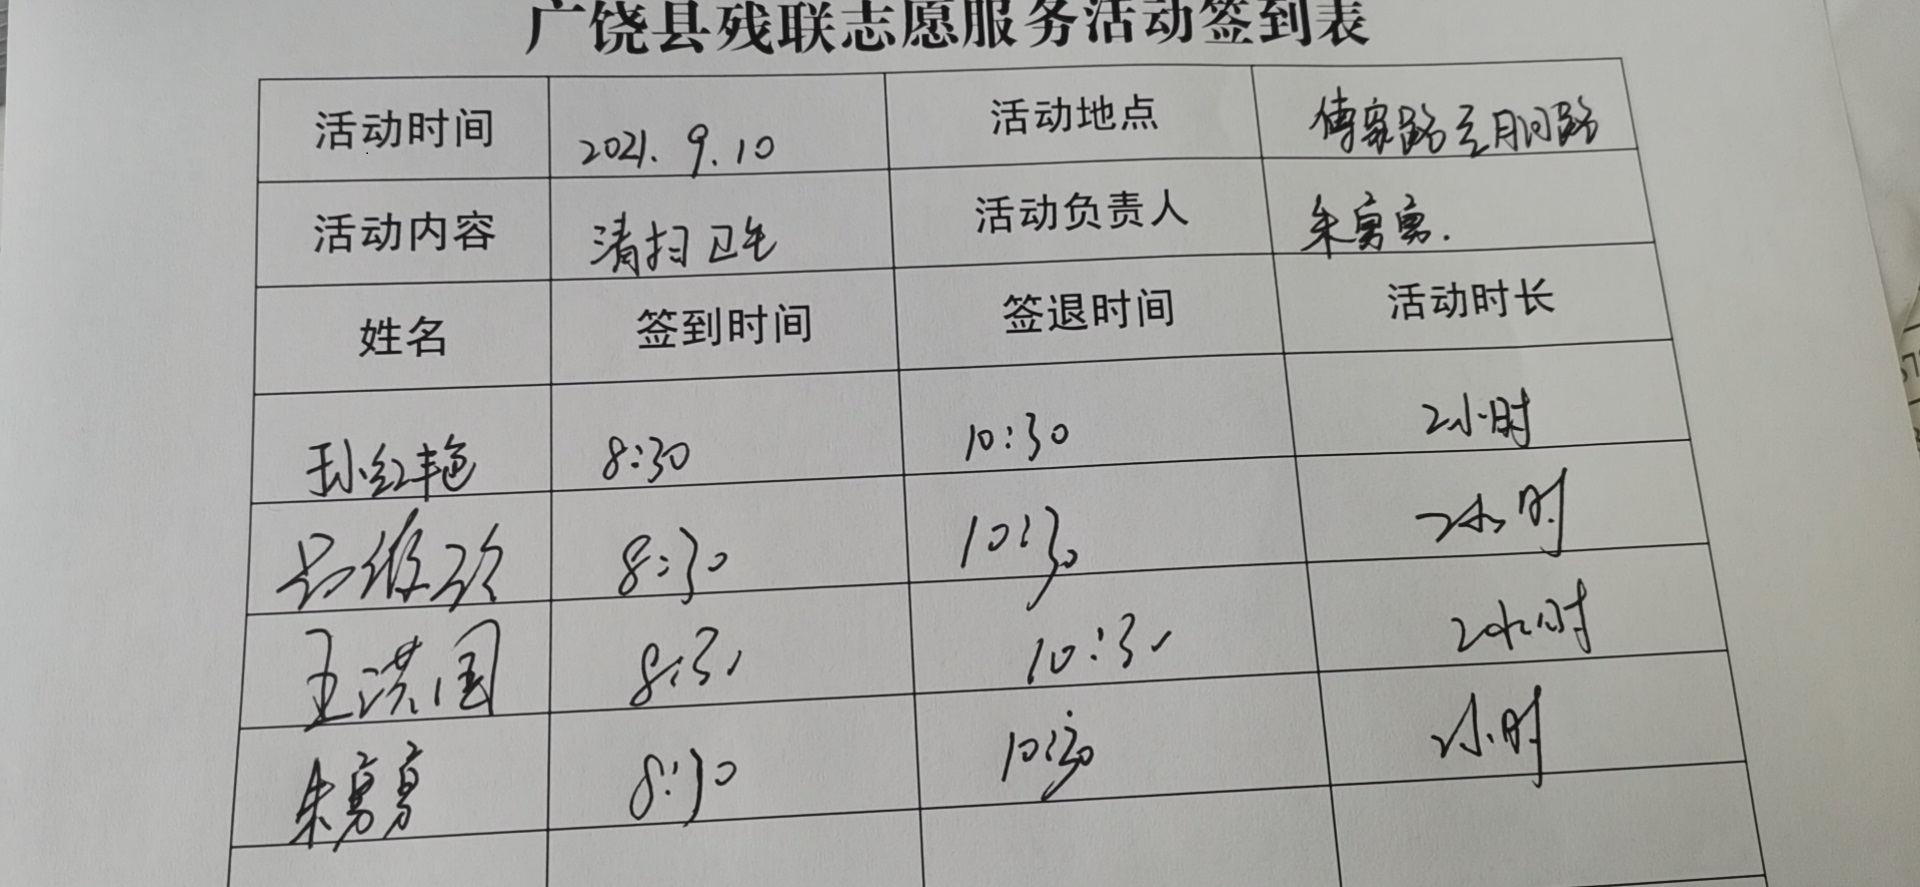 广饶县残联志愿服务活动签到表
活动时间 2021.9.10 活动地点 傅家路至月河路
活动内容 清扫卫生 活动负责人 朱寓寓.
姓名 签到时间 签退时间 活动时长
孙红艳 8:30 10:30 2小时
8:30 10:30 2小时
王洪国 8:30 10:30 2小时
朱寓寓 8:30 10:30 2小时